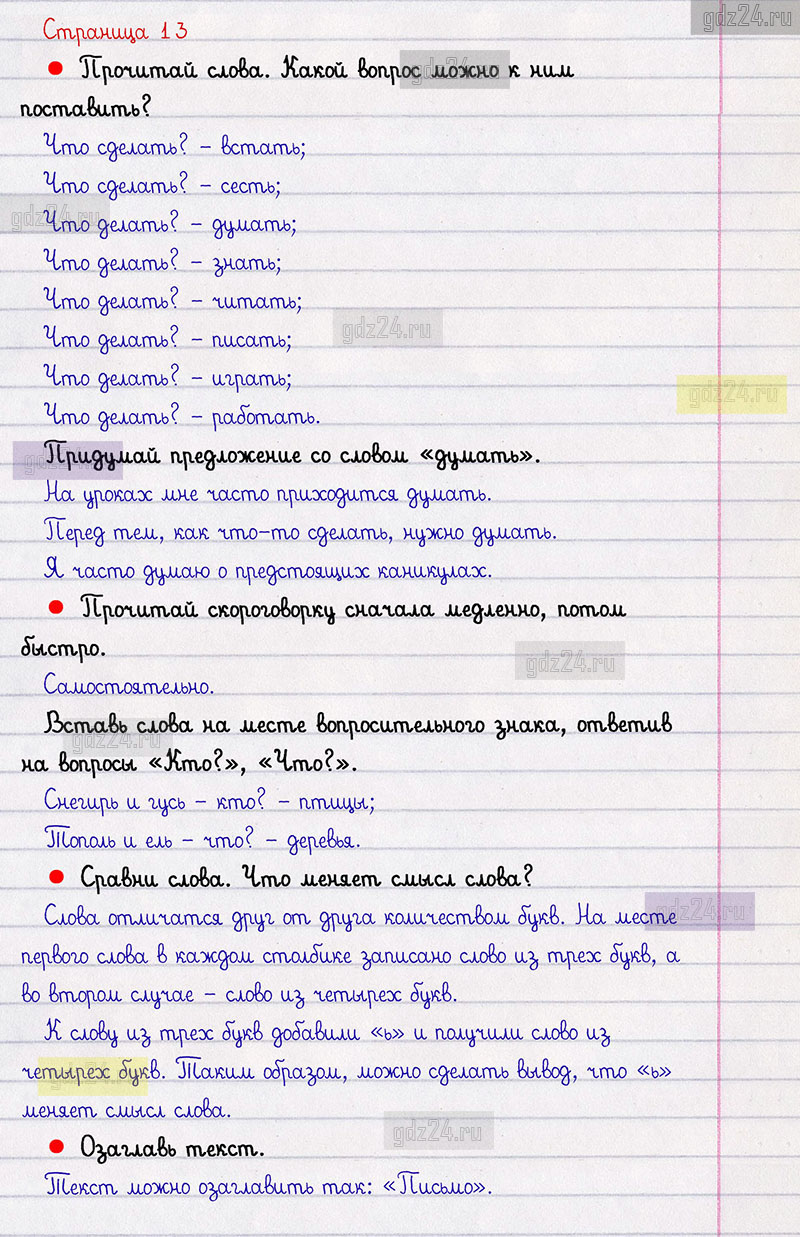 gdz24.ru
Страница 13
• Прочитай слова. Какой вопрос можно к ним
gdz24.ru
поставить?
Что сделать? – встать;
Что сделать? – сесть;
gdz24.ru
Что делать? – думать;
Что делать? – знать;
Что делать? – читать;
gdz24.ru
Что делать? – писать;
Что делать? – играть;
gdz24.ru
Что делать? – работать.
Придумай предложение со словом «думать».
gdz24.ru
На уроках мне часто приходится думать.
Перед тем, как что-то сделать, нужно думать.
Я часто думаю о предстоящих каникулах.
• Прочитай скороговорку сначала медленно, потом
быстро.
gdz24.ru
Самостоятельно.
Вставь слова на месте вопросительного знака, ответив
gdz24.ru
на вопросы «Кто?», «Что?».
Снегирь и гусь – кто? – птицы;
Тополь и ель – что? – деревья.
• Сравни слова. Что меняет смысл слова?
Слова отличатся друг от друга количеством букв. На месте
gdz24.ru
первого слова в каждом столбике записано слово из трех букв, а
во втором случае – слово из четырех букв.
К слову из трех букв добавили «ь» и получили слово из
четырех букв. Таким образом, можно сделать вывод, что «ь»
gdz24.ru
меняет смысл слова.
gdz24.ru
• Озаглавь текст.
Текст можно озаглавить так: «Письмо».